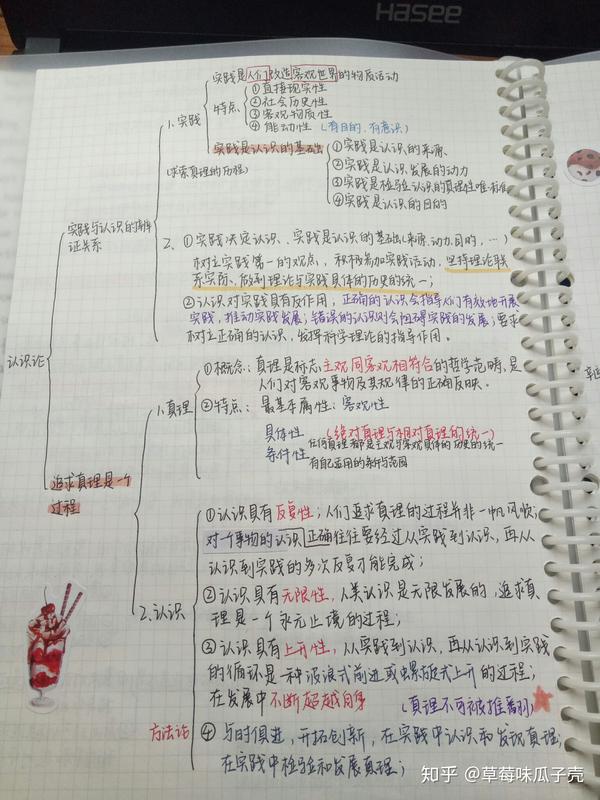 Hasee
实践是人们改造客观世界的物质活动
1.实践
特点
①直接现实性
②社会历史性
③客观物质性
④能动性(有目的,有意识)
实践是认识的基础
①实践是认识的来源、
②实践是认识发展的动力
③实践是检验认识的真理性唯一标准
④实践是认识的目的
(求索真理的历程)
认识论
实践与认识的辩证关系
2、①实践决定认识、实践是认识的基础(来源,动力,目的,…)
树立实践第一的观点,积极参加实践活动,坚持理论联
系实际、做到理论与实践具体的历史的统一;
②认识对实践具有反作用,正确的认识会指导人们有效地开展
实践,推动实践发展;错误的认识对会阻碍实践的发展;要求
树立正确的认识,发挥科学理论的指导作用。
追求真理是一个
过程
1.真理
①概念:真理是标志主观同客观相符合的哲学范畴,是
人们对客观事物及其规律的正确反映。
②特点:最基本属性:客观性
具体性(绝对真理与相对真理的统一)
任何真理都是主观与客观具体的历史的统一
条件性
有自己适用的条件与范围
2.认识
①认识具有反复性;人们追求真理的过程并非一帆风顺;
对一个事物的认识正确往往要经过从实践到认识,再从
认识到实践的多次反复才能完成;
②认识具有无限性,人类认识是无限发展的,追求真
理是一个永无止境的过程;
③认识具有上升性,从实践到认识,再从认识到实践
的循环是一种波浪式前进或螺旋式上升的过程;
在发展中不断超越自身
(真理不可被推翻)
方法论
④与时俱进,开拓创新,在实践中认识和发现真理;
在实践中检验和发展真理;
知乎 @草莓味瓜子壳